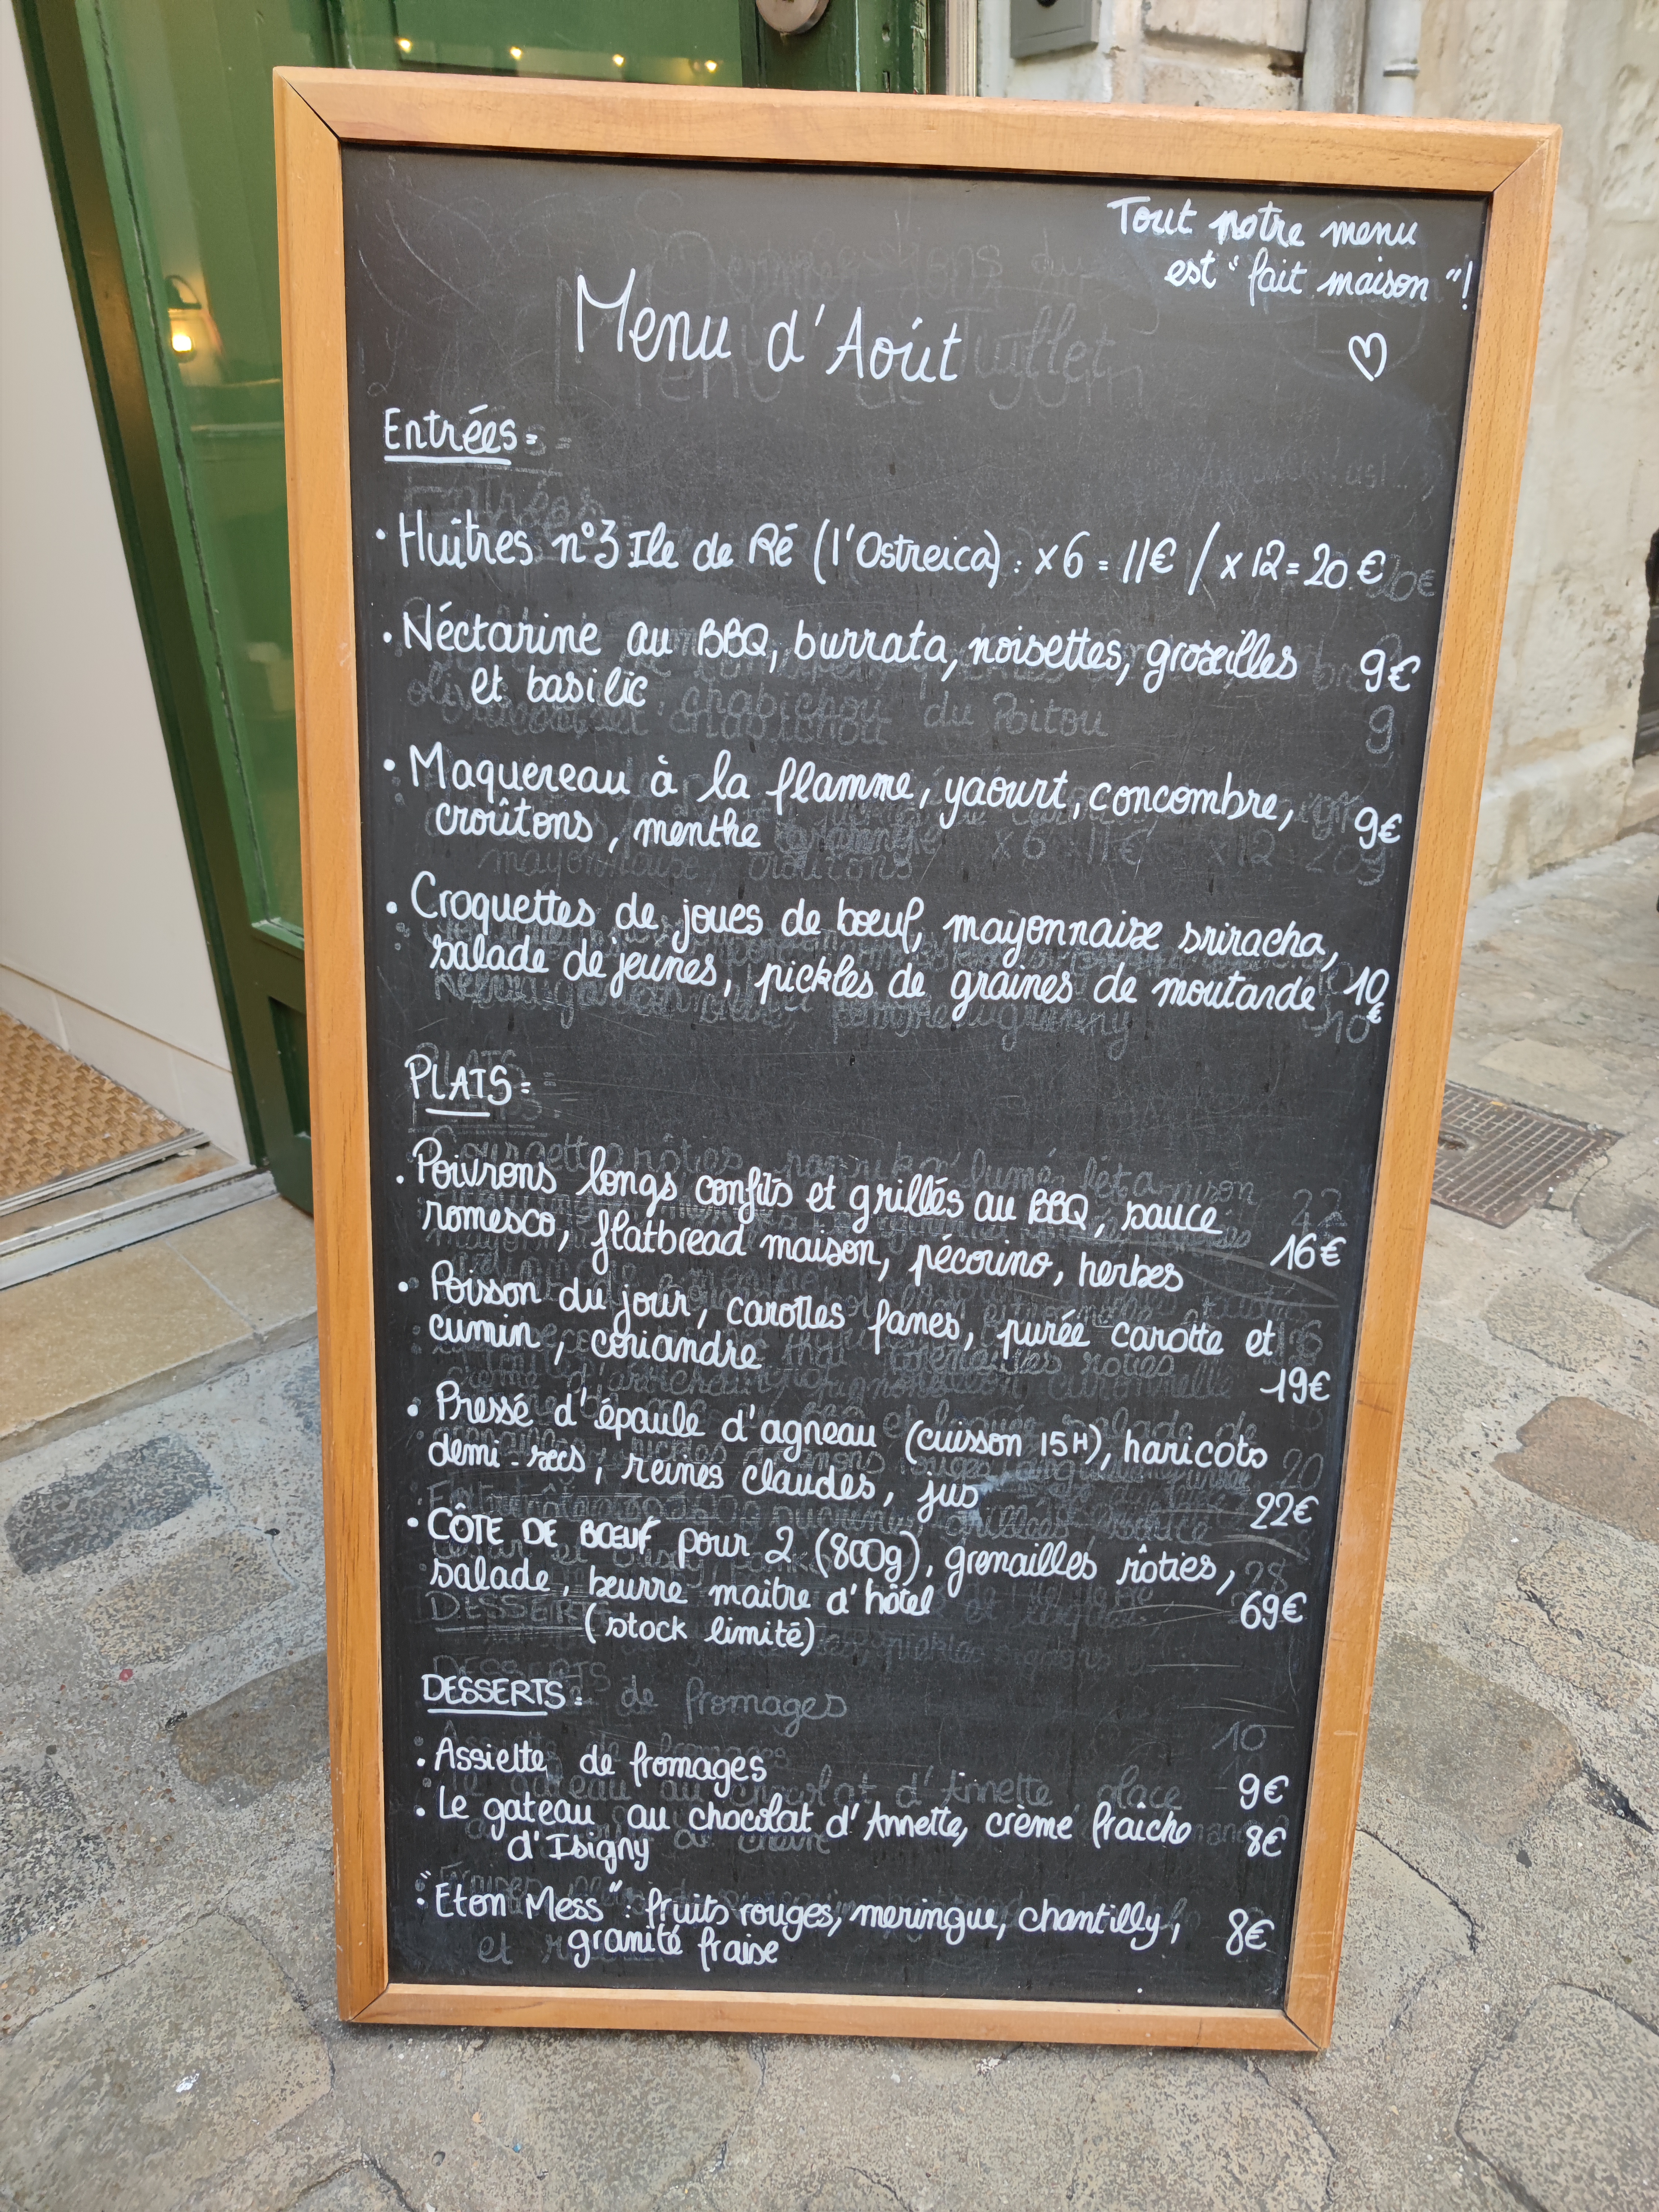 Tout notre menu
est "fait maison"!
Menu d'Août
Entrées:
• Huîtres n°3 Ile de Ré (l'Ostreica) : x6 = 11€ / x12 = 20€
• Néctarine au BBQ, burrata, noisettes, groseilles 9€
et basilic
• Maquereau à la flamme, yaourt, concombre, 9€
croûtons, menthe
• Croquettes de joues de bœuf, mayonnaise sriracha,
salade de jeunes, pickles de graines de moutarde 10€
PLATS:
• Poivrons longs confits et grillés au BBQ, sauce
romesco, flatbread maison, pécorino, herbes 16€
• Poisson du jour, carottes fanes, purée carotte et
cumin, coriandre 19€
• Pressé d'épaule d'agneau (cuisson 15H), haricots
demi-secs, reines claudes, jus 22€
• CÔTE DE BŒUF pour 2 (800g), grenailles rôties,
salade, beurre maitre d'hôtel 69€
(stock limité)
DESSERTS:
• Assiette de fromages 9€
• Le gateau au chocolat d'Annette, crème fraîche 8€
d'Isigny
• "Eton Mess": fruits rouges, meringue, chantilly, 8€
granité fraise